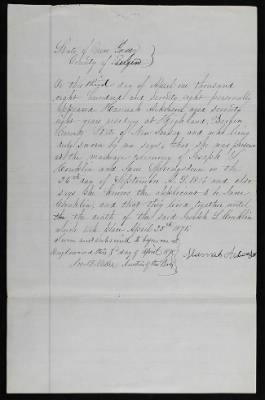 State of New Jersey }
County of Bergen }
On this third day of April one thousand
eight hundred and seventy eight personally
appeared Hannah aged seventy
eight years residing at Highland, Bergen
County State of New Jersey and who being
duly sworn by me says that she was present
at the marriage ceremony of Joseph L
Conklin and Jane in the
26th day of September A.D. 1817 and also
says she knows the applicant to be Jane
Conklin, and that they lived together until
the death of the said Joseph L. Conklin
which took place April 25th
Sworn and subscribed to before me at
this 3d day of April 1878
Justice of the Peace
Hannah